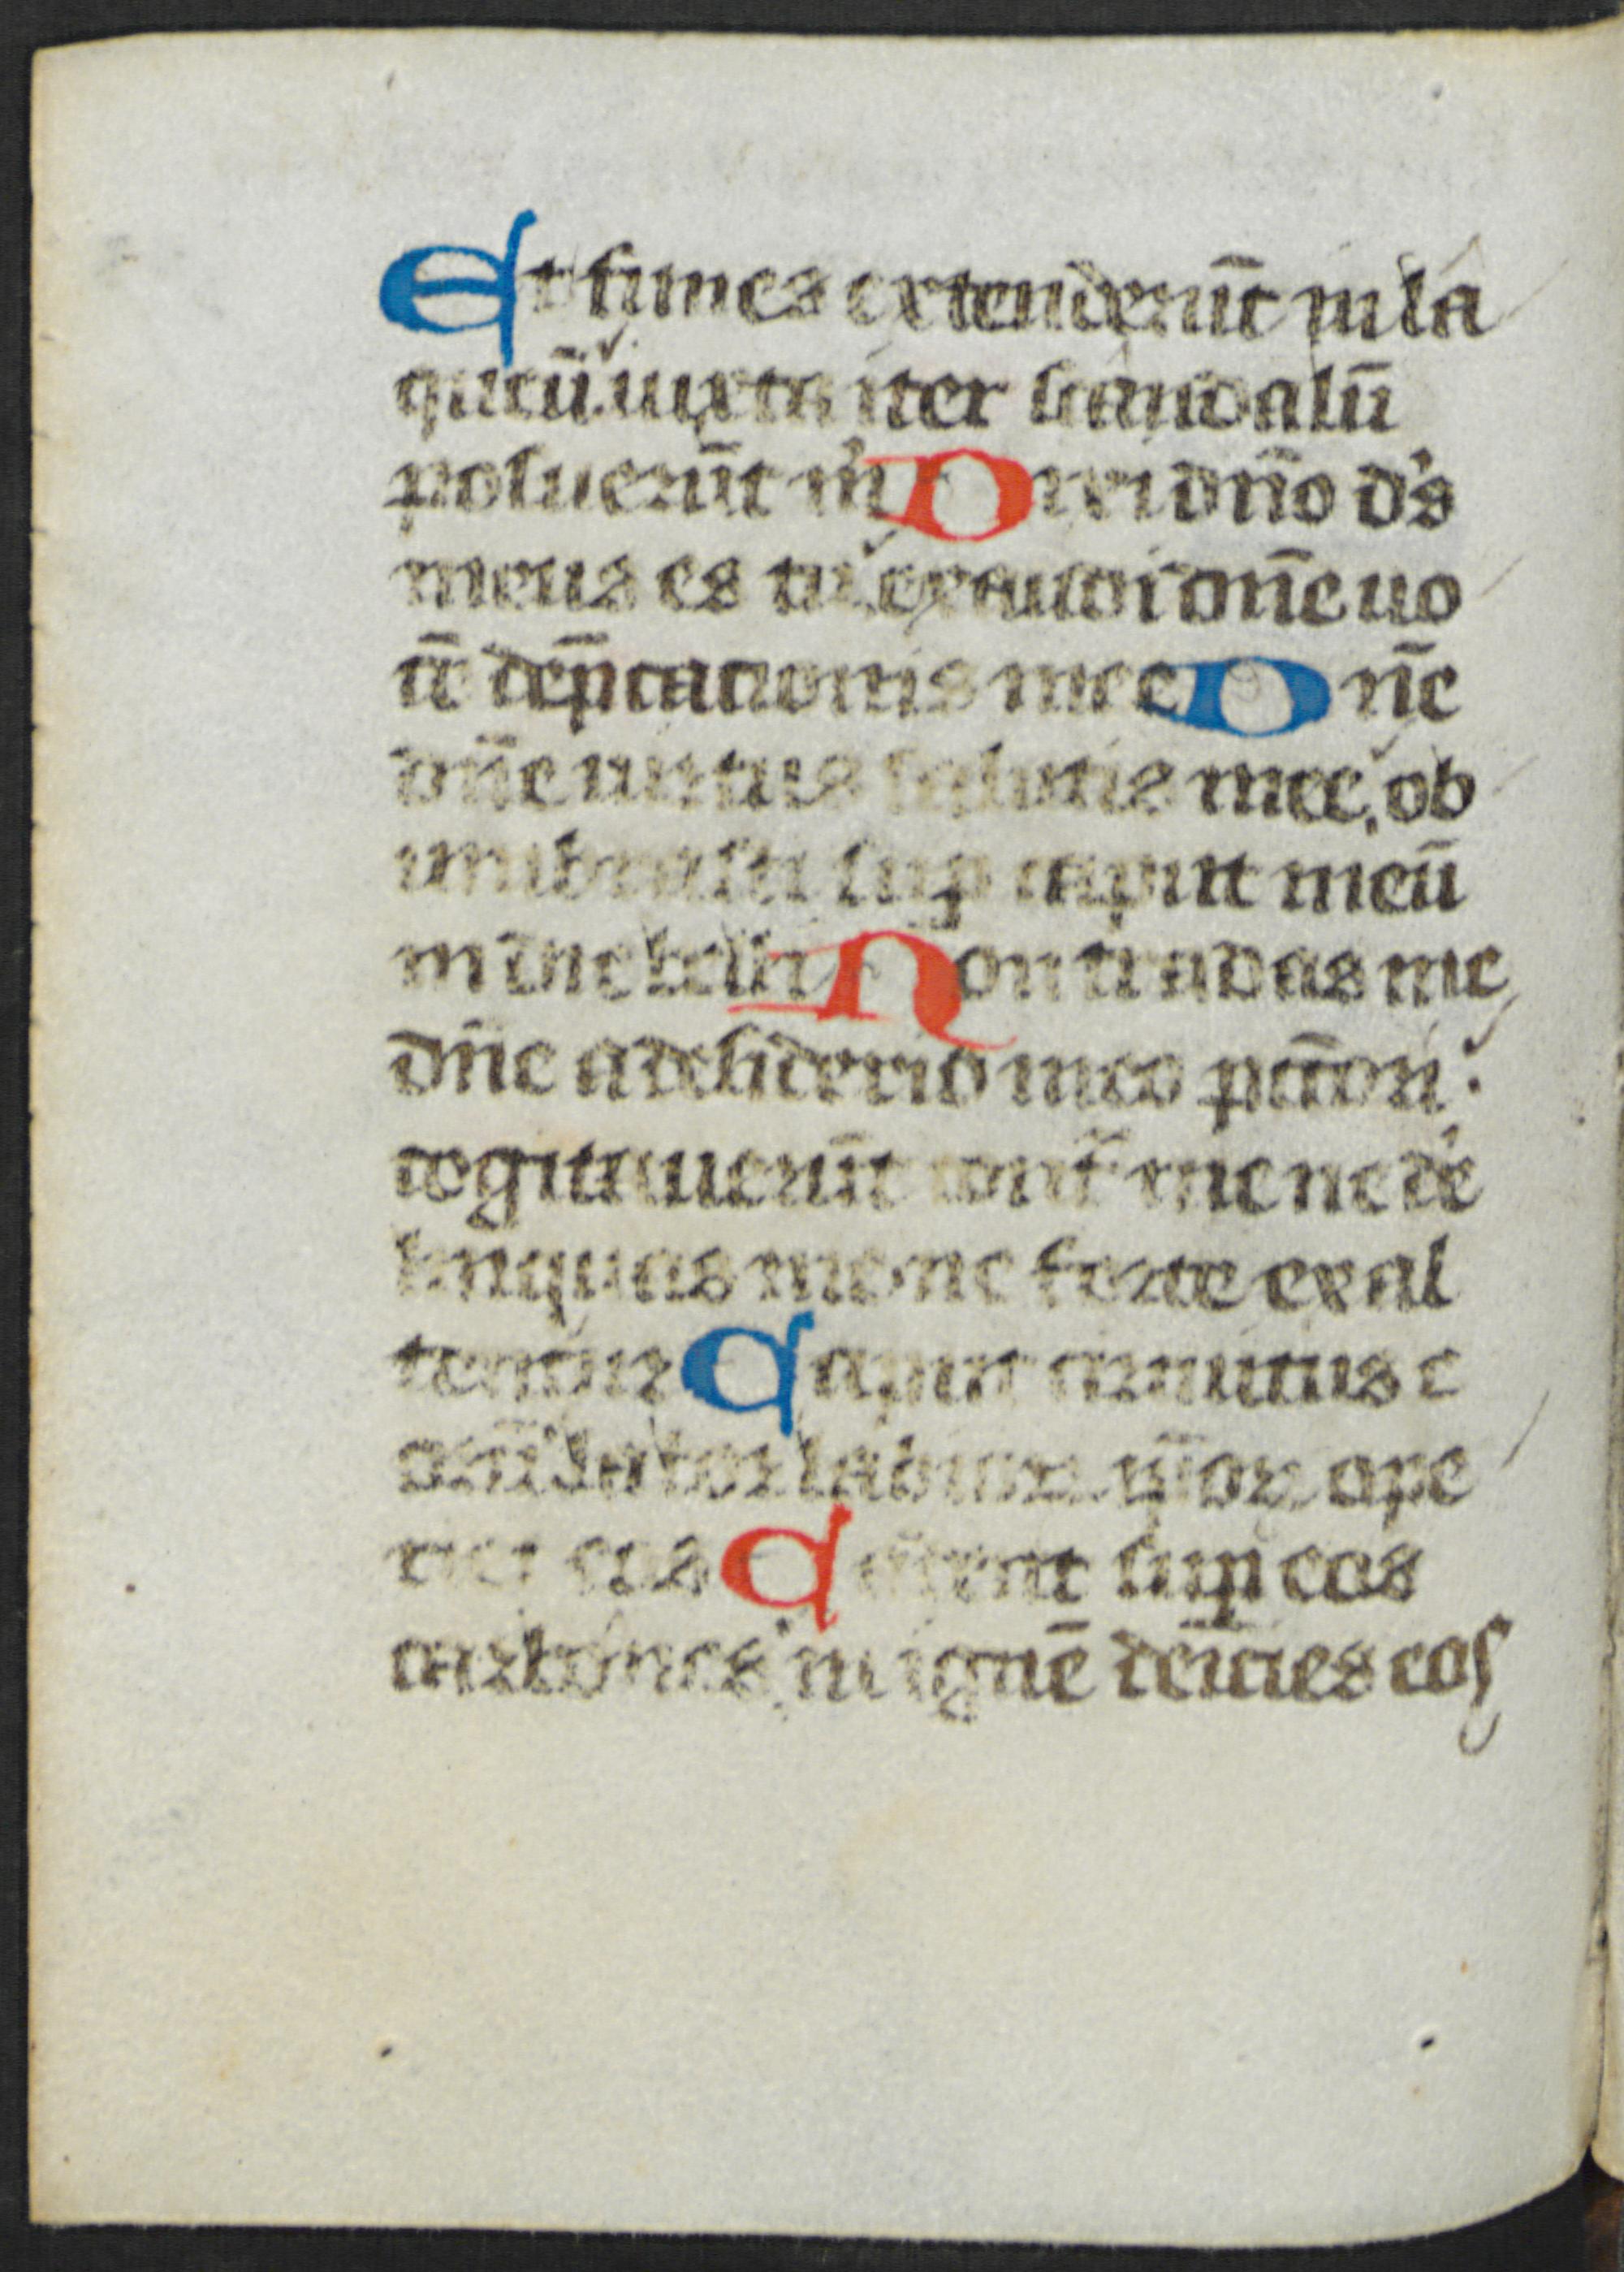 Et funes extenderūt in la
queū. iuxta iter scandalū
posuerūt m̄ Dixi dn̄o d's
meus es tu exaudi dn̄e uo
cē dep̄cationis mee Dn̄e
dn̄e uirtus salutis mee, ob
umbrasti sup caput meū
in die belli Non tradas me
dn̄e a desiderio meo pctōri:
cogitauerūt cont̄ me ne de
linquas me ne forte exal
tentur Caput circuitus e
orū labor labiorum ip̄or ope
riet eos Cadent sup eos
carbones in ignē deicies eos